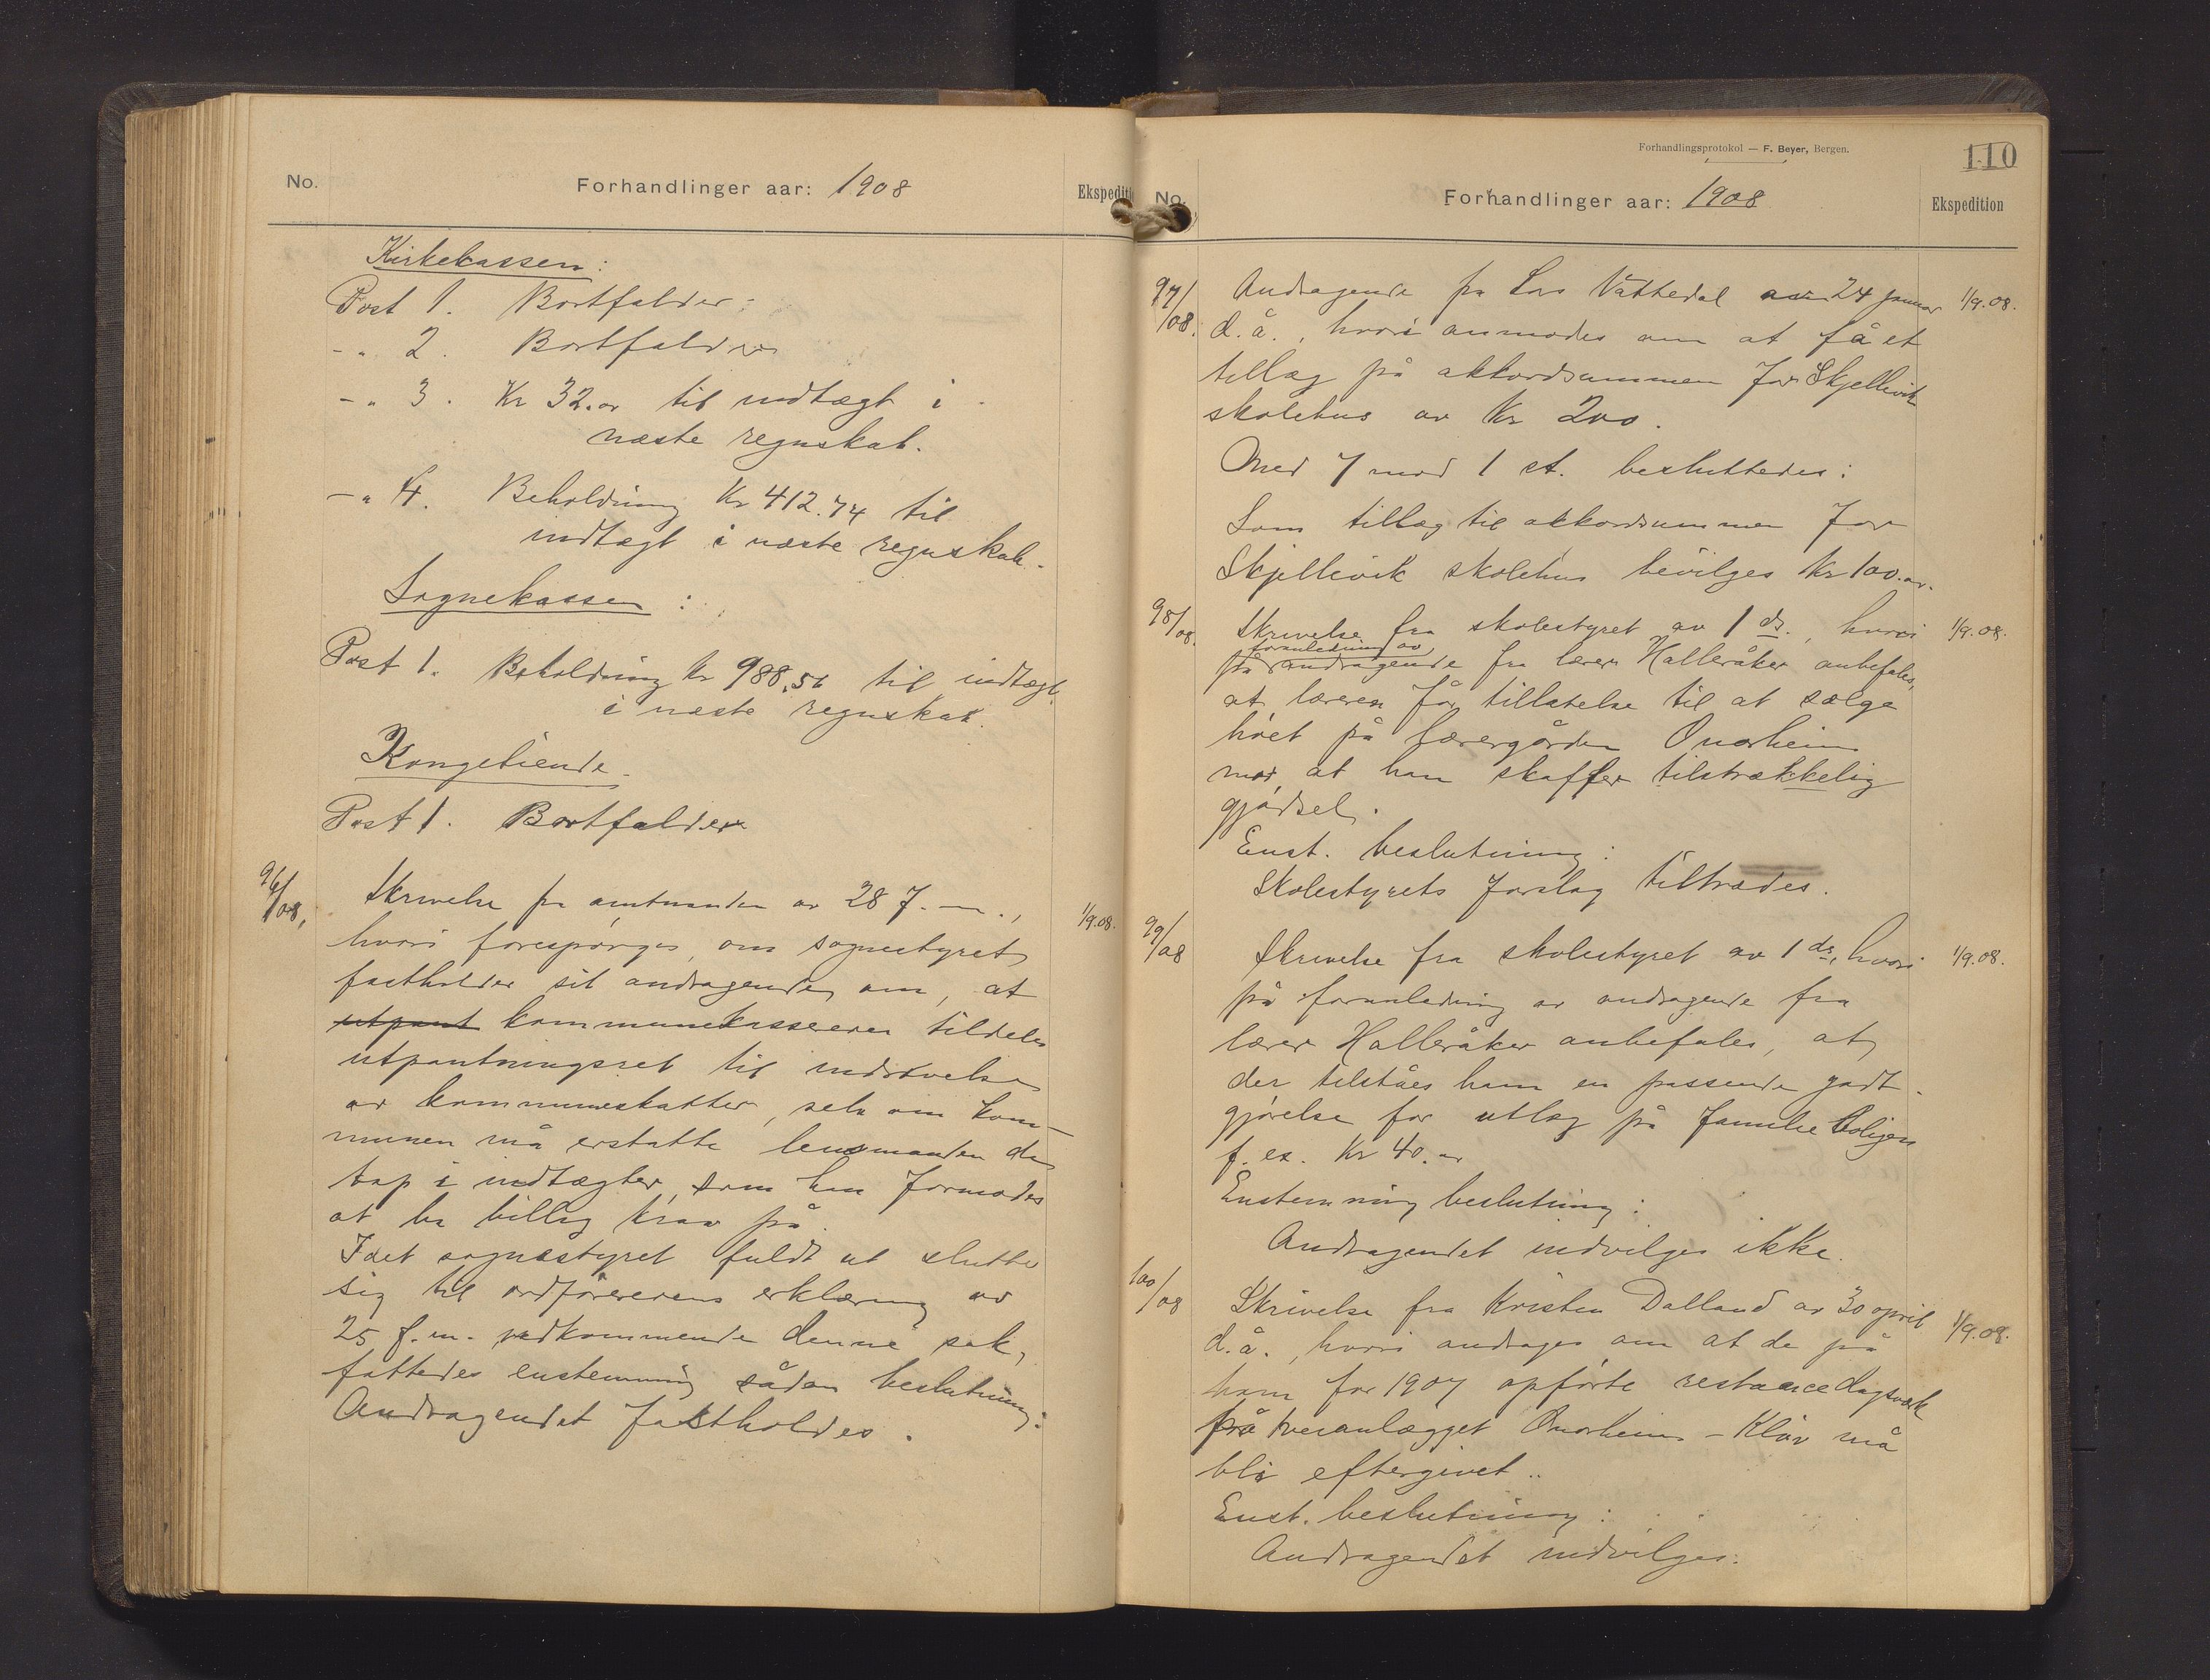 No.
Forhandlinger aar: 1908
Ekspediti
Kirkekassen:
Post 1. Bortfalder:
-„ 2. Bortfalder
-„ 3. Kr 32.00 til indtægt i
næste regnskab.
-„ 4. Beholdning Kr 412.74 til
indtægt i næste regnskab.
Sognekassen:
Post 1. Beholdning kr 988.56 til indtægt
i næste regnskab.
Kongetiende.
Post 1. Bortfalder
96/08. Skrivelse fra amtmanden av 28 f.m., 1/9.08.
hvori forespørges, om sognestyret
fastholder sit andragende om, at
utpant kommunekassereren tildeles
utpantningsret til inddrivelse
av kommuneskatter, selv om kom-
munen må erstatte lensmanden de
tap i indtægter, som han formodes
at ha billig krav på.
Idet sognestyret fuldt ut slutter
sig til ordførerens erklæring av
25 f.m. vedkommende denne sak,
fattedes enstemmig sådan beslutning:
Andragendet fastholdes.
Forhandlingsprotokol — F. Beyer, Bergen.
110
No.
Forhandlinger aar: 1908
Ekspedition
97/08. Andragende fra Lars Vattedal av 24 januar 1/9.08.
d.å., hvori anmodes om at få et
tillæg på akkordsummen for Skjellevik
skolehus av Kr 200.
Med 7 mod 1 st. besluttedes:
Som tillæg til akkordsummen for
Skjellevik skolehus bevilges Kr 100.00.
98/08. Skrivelse fra skolestyret av 1 ds., hvori 1/9.08.
foranledning av
på andragende fra lærer Halleråker anbefales,
at læreren får tillatelse til at sælge
høet på lærergården Onarheim
mot, at han skaffer tilstrækkelig
gjødsel.
Enst. beslutning:
Skolestyrets forslag tiltrædes.
99/08 Skrivelse fra skolestyret av 1 ds., hvori 1/9.08.
på foranledning av andragende fra
lærer Halleråker anbefales, at
der tilståes ham en passende godt-
gjørelse for utlæg på familieboligen
f. ex. Kr 40.00
Enstemmig beslutning:
Andragendet indvilges ikke.
100/08 Skrivelse fra Kristen Dalland av 30 april 1/9.08.
d.å., hvori andrages om at de på
ham for 1907 opførte restance dagsverk
på veianlægget Onarheim - Kløv må
bli eftergivet.
Enst. beslutning:
Andragendet indvilges.